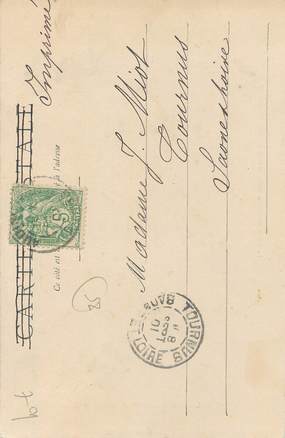 CARTE POSTALE
Imprimé
Ce côté est
à l'adresse
Madame J. Miot
Tournus
Saone & Loire
TOURNUS
ET LOIRE
35